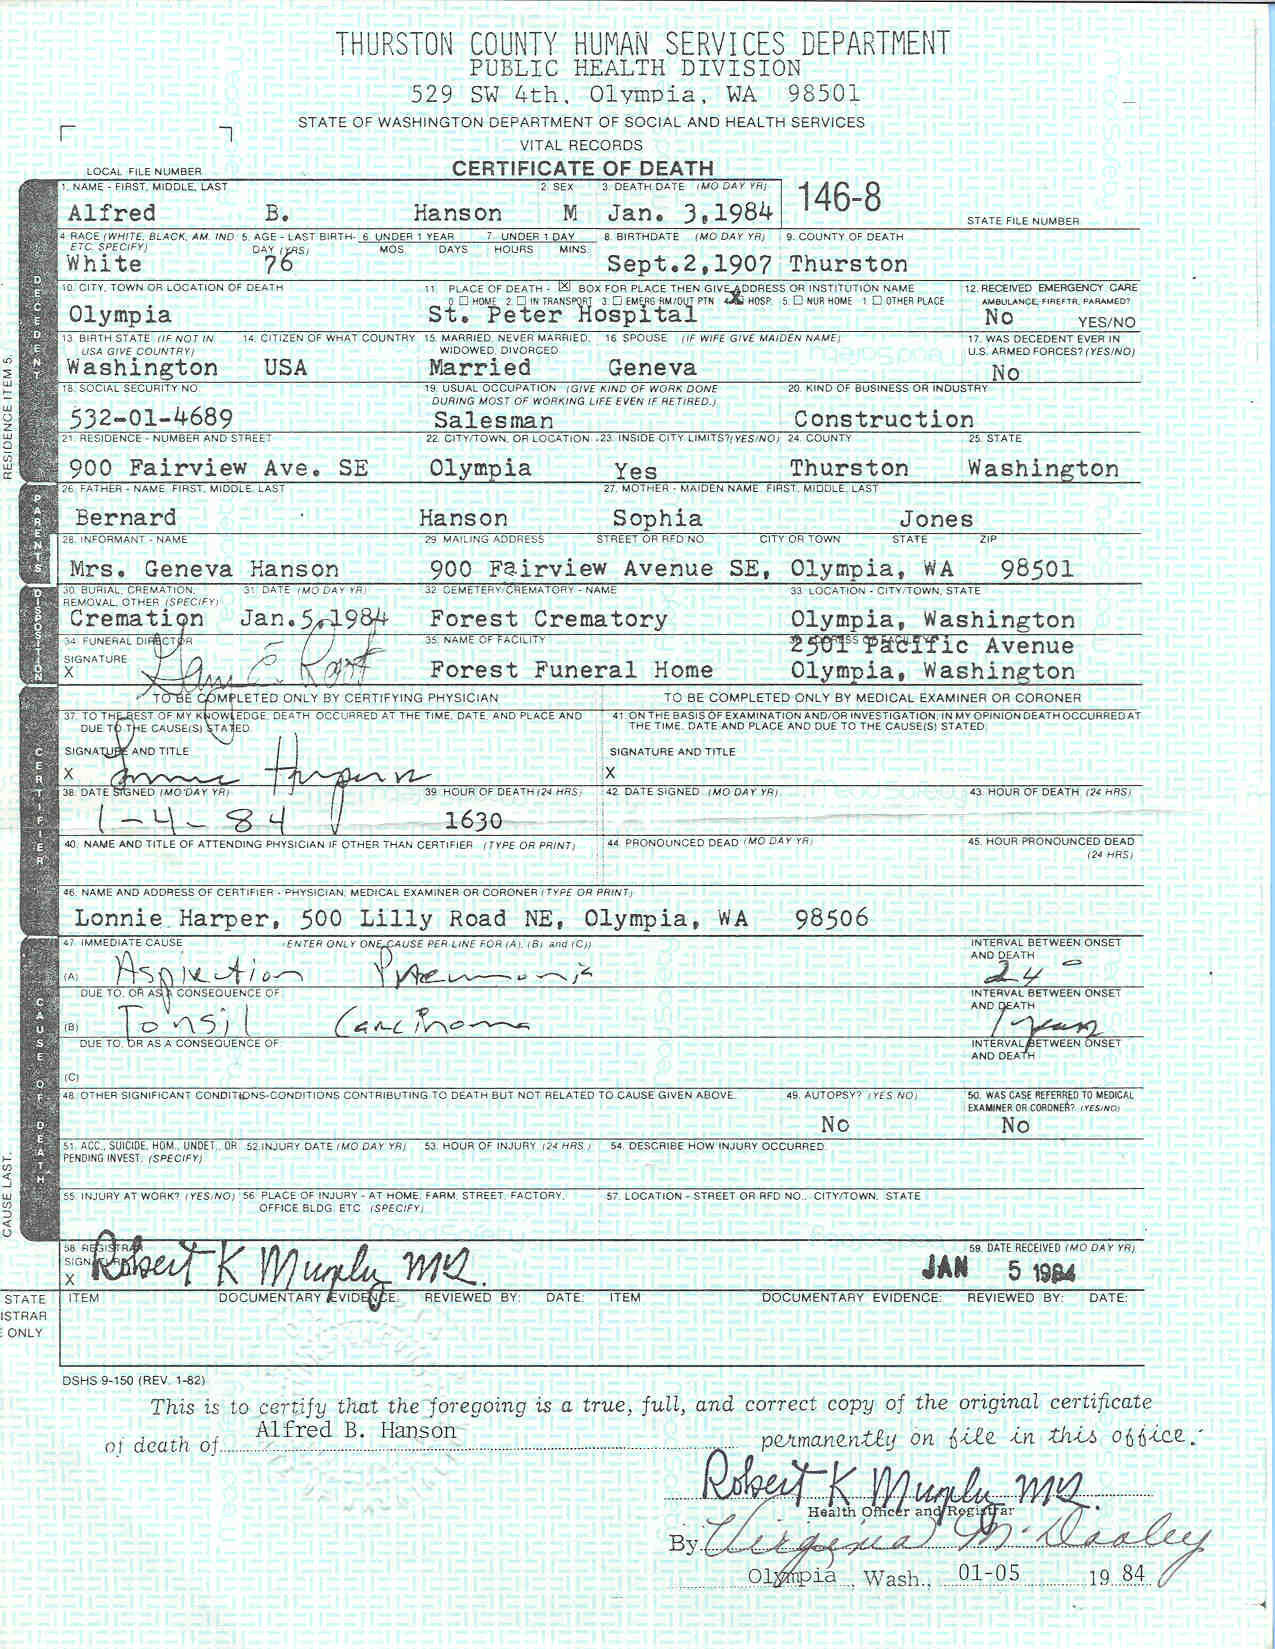 THURSTON COUNTY HUMAN SERVICES DEPARTMENT
PUBLIC HEALTH DIVISION
529 SW 4th, Olympia, WA 98501
STATE OF WASHINGTON DEPARTMENT OF SOCIAL AND HEALTH SERVICES
VITAL RECORDS
LOCAL FILE NUMBER
CERTIFICATE OF DEATH
146-8
STATE FILE NUMBER
1. NAME - FIRST, MIDDLE, LAST 2. SEX 3. DEATH DATE (MO DAY YR)
Alfred B. Hanson M Jan. 3,1984
4. RACE (WHITE, BLACK, AM. IND. ETC. SPECIFY) 5. AGE - LAST BIRTHDAY (YRS) 6. UNDER 1 YEAR MOS. DAYS 7. UNDER 1 DAY HOURS MINS. 8. BIRTHDATE (MO DAY YR) 9. COUNTY OF DEATH
White 76 Sept.2,1907 Thurston
10. CITY, TOWN OR LOCATION OF DEATH 11. PLACE OF DEATH - ☒ BOX FOR PLACE THEN GIVE ADDRESS OR INSTITUTION NAME 12. RECEIVED EMERGENCY CARE
0 ☐ HOME 2 ☐ IN TRANSPORT 3 ☐ EMERG RM/OUT PTN 4 ☒ HOSP. 5 ☐ NUR HOME 1 ☐ OTHER PLACE AMBULANCE, FIREFTR, PARAMED?
Olympia St. Peter Hospital No YES/NO
13. BIRTH STATE (IF NOT IN USA GIVE COUNTRY) 14. CITIZEN OF WHAT COUNTRY 15. MARRIED, NEVER MARRIED, WIDOWED, DIVORCED 16. SPOUSE (IF WIFE GIVE MAIDEN NAME) 17. WAS DECEDENT EVER IN U.S. ARMED FORCES? (YES/NO)
Washington USA Married Geneva No
18. SOCIAL SECURITY NO. 19. USUAL OCCUPATION (GIVE KIND OF WORK DONE DURING MOST OF WORKING LIFE EVEN IF RETIRED.) 20. KIND OF BUSINESS OR INDUSTRY
532-01-4689 Salesman Construction
21. RESIDENCE - NUMBER AND STREET 22. CITY/TOWN, OR LOCATION 23. INSIDE CITY LIMITS? (YES/NO) 24. COUNTY 25. STATE
900 Fairview Ave. SE Olympia Yes Thurston Washington
26. FATHER - NAME FIRST, MIDDLE, LAST 27. MOTHER - MAIDEN NAME FIRST, MIDDLE, LAST
Bernard Hanson Sophia Jones
28. INFORMANT - NAME 29. MAILING ADDRESS STREET OR RFD NO CITY OR TOWN STATE ZIP
Mrs. Geneva Hanson 900 Fairview Avenue SE, Olympia, WA 98501
30. BURIAL, CREMATION, REMOVAL, OTHER (SPECIFY) 31. DATE (MO DAY YR) 32. CEMETERY/CREMATORY - NAME 33. LOCATION - CITY/TOWN, STATE
Cremation Jan.5,1984 Forest Crematory Olympia, Washington
34. FUNERAL DIRECTOR SIGNATURE 35. NAME OF FACILITY 36. ADDRESS OF FACILITY
2501 Pacific Avenue
X Forest Funeral Home Olympia, Washington
TO BE COMPLETED ONLY BY CERTIFYING PHYSICIAN TO BE COMPLETED ONLY BY MEDICAL EXAMINER OR CORONER
37. TO THE BEST OF MY KNOWLEDGE, DEATH OCCURRED AT THE TIME, DATE, AND PLACE AND DUE TO THE CAUSE(S) STATED. 41. ON THE BASIS OF EXAMINATION AND/OR INVESTIGATION, IN MY OPINION DEATH OCCURRED AT THE TIME, DATE AND PLACE AND DUE TO THE CAUSE(S) STATED.
SIGNATURE AND TITLE SIGNATURE AND TITLE
X X
38. DATE SIGNED (MO DAY YR) 39. HOUR OF DEATH (24 HRS) 42. DATE SIGNED (MO DAY YR) 43. HOUR OF DEATH (24 HRS)
1-4-84 1630
40. NAME AND TITLE OF ATTENDING PHYSICIAN IF OTHER THAN CERTIFIER (TYPE OR PRINT) 44. PRONOUNCED DEAD (MO DAY YR) 45. HOUR PRONOUNCED DEAD (24 HRS)
46. NAME AND ADDRESS OF CERTIFIER - PHYSICIAN, MEDICAL EXAMINER OR CORONER (TYPE OR PRINT)
Lonnie Harper, 500 Lilly Road NE, Olympia, WA 98506
47. IMMEDIATE CAUSE (ENTER ONLY ONE CAUSE PER LINE FOR (A), (B) and (C)) INTERVAL BETWEEN ONSET AND DEATH
(A) Aspiration Pneumonia 24°
DUE TO, OR AS A CONSEQUENCE OF INTERVAL BETWEEN ONSET AND DEATH
(B) Tonsil Carcinoma 1 year
DUE TO, OR AS A CONSEQUENCE OF INTERVAL BETWEEN ONSET AND DEATH
(C)
48. OTHER SIGNIFICANT CONDITIONS-CONDITIONS CONTRIBUTING TO DEATH BUT NOT RELATED TO CAUSE GIVEN ABOVE. 49. AUTOPSY? (YES NO) 50. WAS CASE REFERRED TO MEDICAL EXAMINER OR CORONER? (YES/NO)
No No
51. ACC., SUICIDE, HOM., UNDET., OR PENDING INVEST. (SPECIFY) 52. INJURY DATE (MO DAY YR) 53. HOUR OF INJURY (24 HRS.) 54. DESCRIBE HOW INJURY OCCURRED
55. INJURY AT WORK? (YES/NO) 56. PLACE OF INJURY - AT HOME, FARM, STREET, FACTORY, OFFICE BLDG. ETC. (SPECIFY) 57. LOCATION - STREET OR RFD NO., CITY/TOWN, STATE
58. REGISTRAR SIGNATURE 59. DATE RECEIVED (MO DAY YR)
X Robert K Murphy MD. JAN 5 1984
ITEM DOCUMENTARY EVIDENCE: REVIEWED BY: DATE: ITEM DOCUMENTARY EVIDENCE: REVIEWED BY: DATE:
STATE
ISTRAR
E ONLY
DECEDENT
PARENTS
DISPOSITION
CERTIFIER
CAUSE OF DEATH
RESIDENCE ITEM 5.
CAUSE LAST.
DSHS 9-150 (REV. 1-82)
This is to certify that the foregoing is a true, full, and correct copy of the original certificate
of death of Alfred B. Hanson permanently on file in this office.
Robert K Murphy MD.
Health Officer and Registrar
By Virginia M. Dooley
Olympia, Wash., 01-05 1984